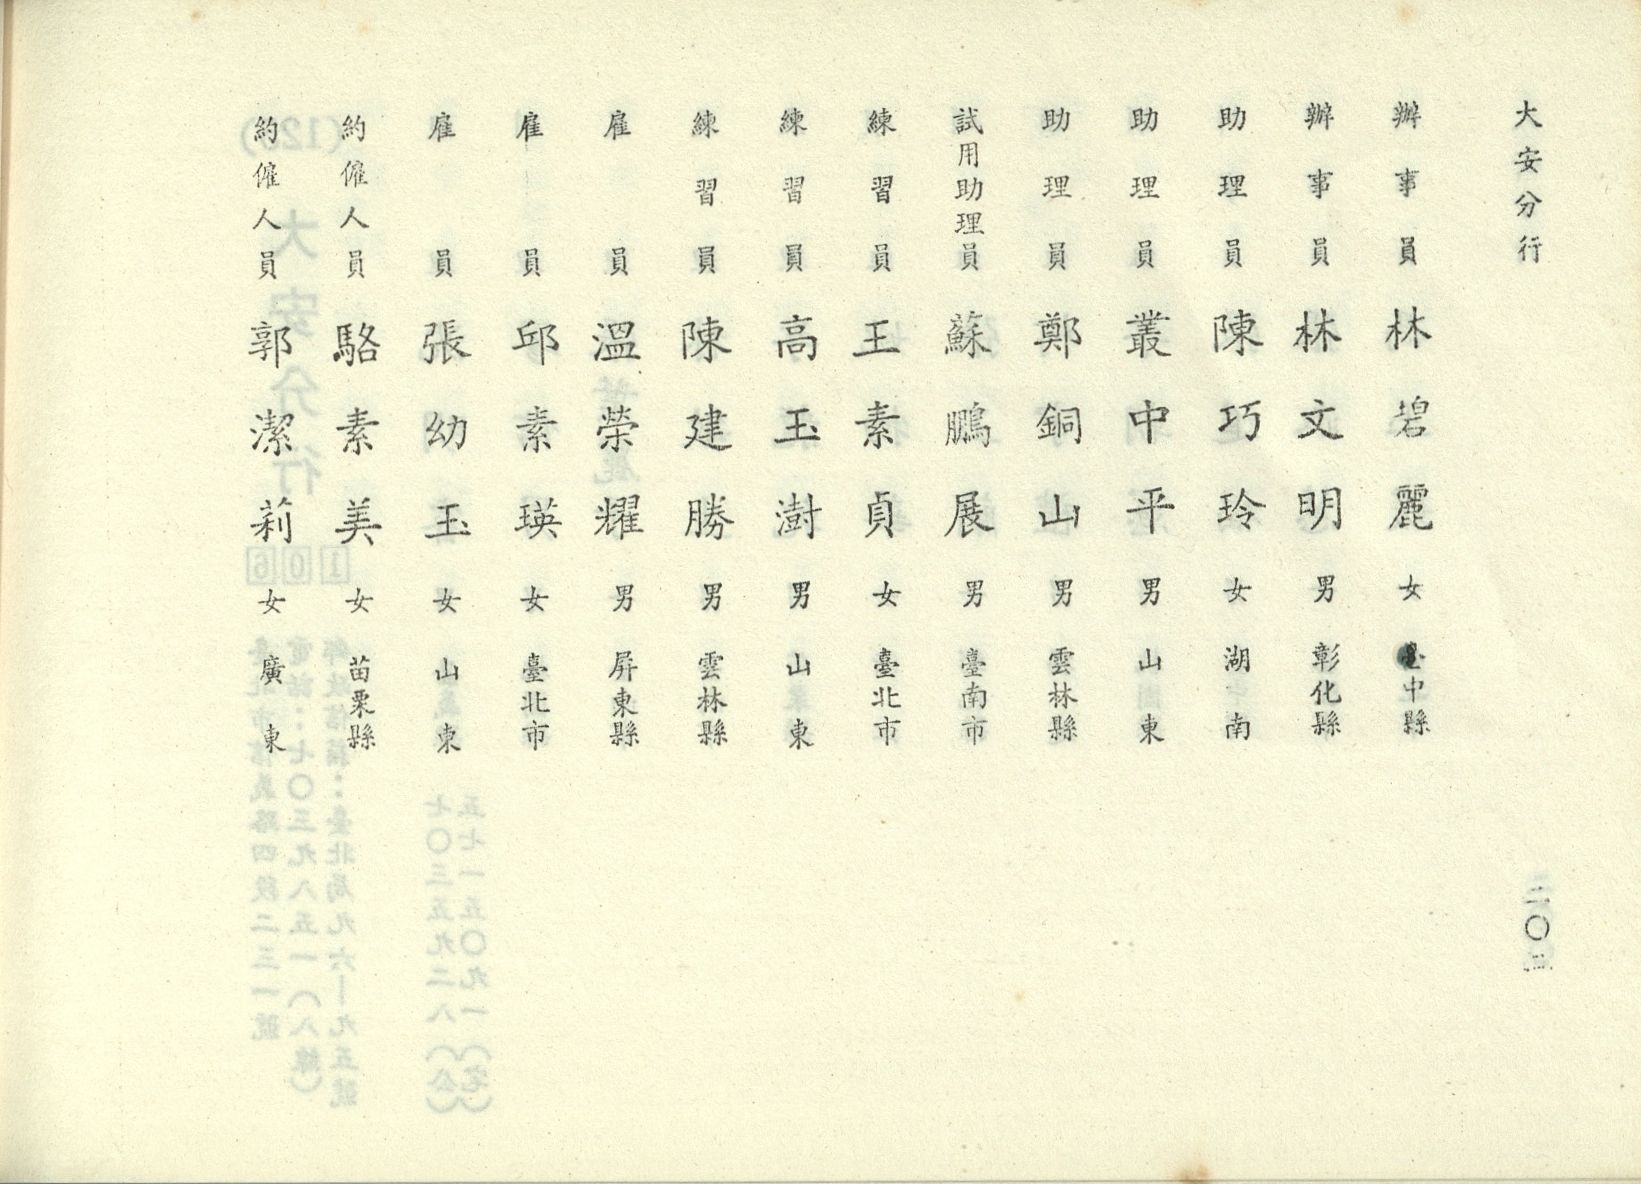 大安分行
辦事員 林碧麗 女 臺中縣
辦事員 林文明 男 彰化縣
助理員 陳巧玲 女 湖南
助理員 叢中平 男 山東
助理員 鄭銅山 男 雲林縣
試用助理員 蘇鵬展 男 臺南市
練習員 王素貞 女 臺北市
練習員 高玉澍 男 山東
練習員 陳建勝 男 雲林縣
雇員 溫榮耀 男 屏東縣
雇員 邱素瑛 女 臺北市
雇員 張幼玉 女 山東
約僱人員 駱素美 女 苗栗縣
約僱人員 郭潔莉 女 廣東